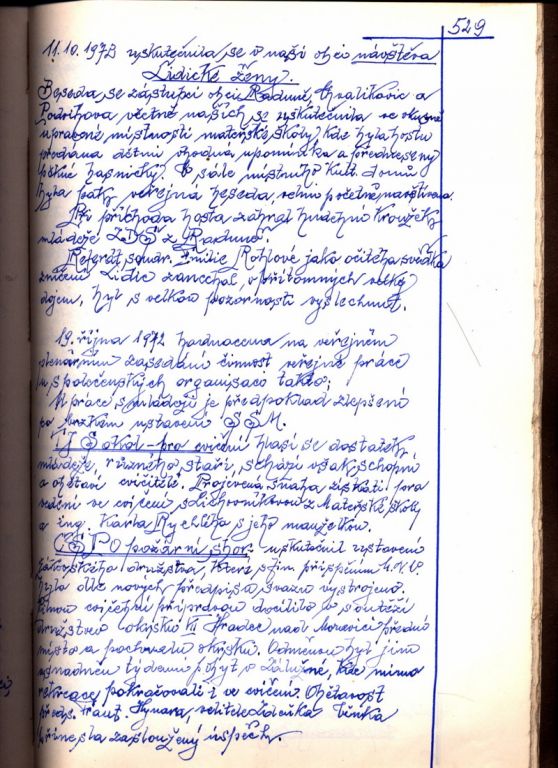 529
11.10.1972 uskutečnila se v naší obci návštěva
Lidické ženy.
Beseda se zástupci obcí Raduně, Chvalíkovic a
Podvihova včetně našich se uskutečnila ve vkusně
upravené místnosti mateřské školy kde byla hostu
předána dětmi vhodná upomínka a předneseny
básničky. V sále místního Kult. domu
byla pak veřejná beseda, velmi početně navštívena.
Při příchodu hosta zahrál hudební kroužek
mládeže LDŠ z Raduně.
Referát soudr. Emilie Rohlové jako očitého svědka
zničení Lidic zanechal v přítomných velký
dojem, byl s velkou pozorností vyslechnut.
19. října 1972 hodnocena na veřejném
plenárním zasedání činnost veřejné práce
a společenských organisací takto;
U práce s mládeží je předpoklad zlepšení
po ustavení SSM.
TJ Sokol - pro cvičení hlásí se dostatek
mládeže, různého stáří, schází však schopní
a obětaví cvičitelé. Projevena snaha získati pro
vedení ve cvičení s. z Mateřské školy
a ing. Karla Rychlého s jeho manželkou.
ČSPO požární sbor - uskutečnil ustavení
žákovského družstva, které s jim přispěním
bylo dle nových předpisů svazu vystrojeno.
cvičební přípravou docílilo v soutěži
družstvo okrsku VII Hradec nad Moravicí přední
místo a pochvalu okrsku. Odměnou byl jim
týdenní pobyt v Zálužné, kde mimo
rekreace pokračovali i ve cvičení. Obětavost
předs. Frant. Hynara, velitele Zdeňka
přinesla zasloužený úspěch.